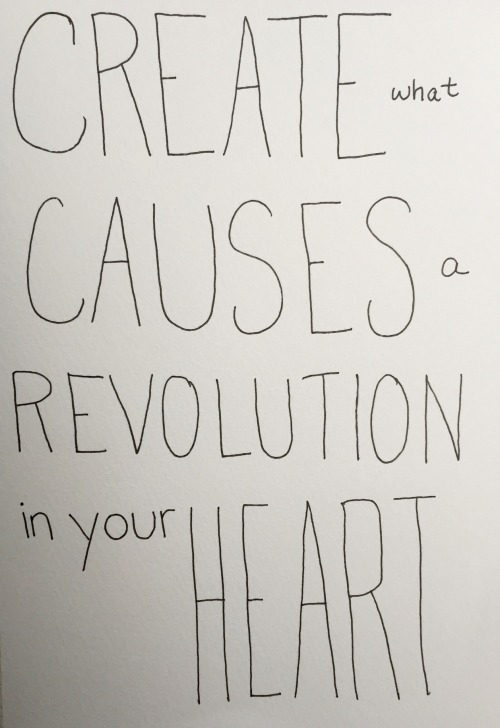 CREATE what
CAUSES a
REVOLUTION
in your HEART